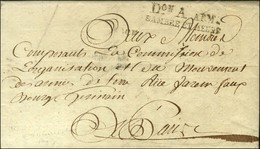 Don A ARM.
SAMBRE ET MEUSE
Aux
Composants La Commission de
L'organisation et du Mouvement
des armées de terre Rue
bourg germain
A Paris